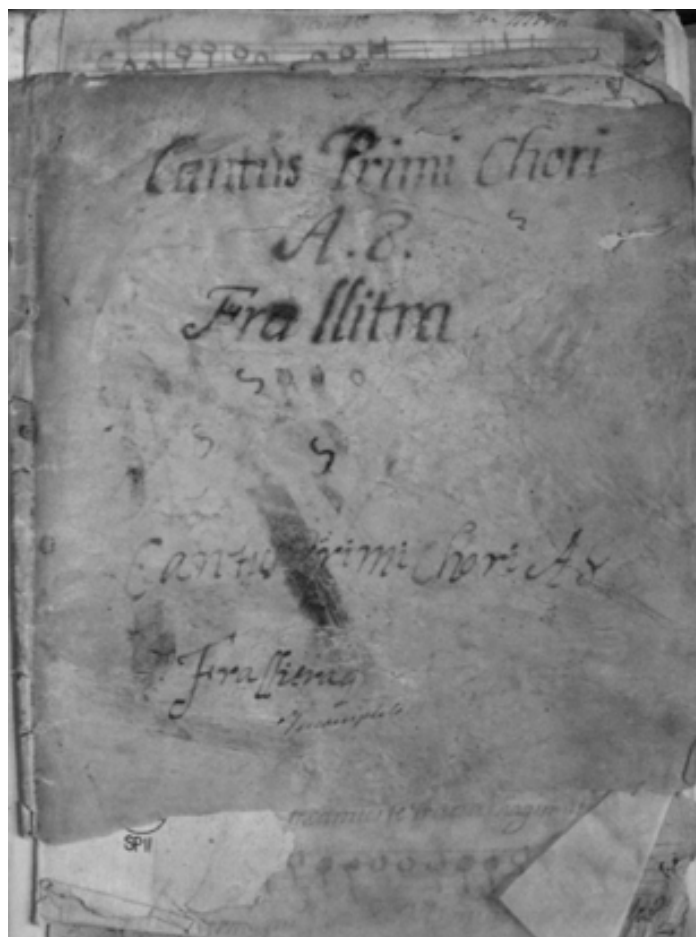 Cantus Primi Chori
A. 8.
Fra llitra
Cantus Primi Chori A 8
Fra llitra
Incompleto
SP11